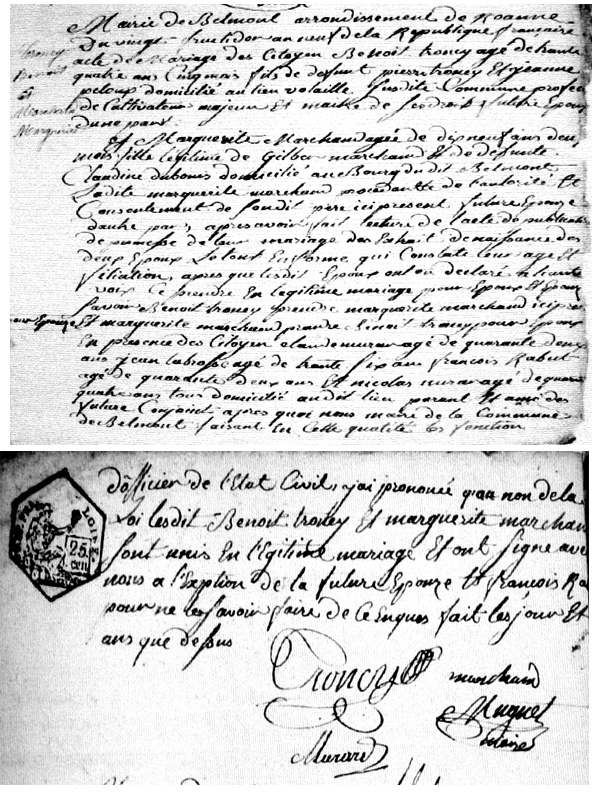 Mairie de Belmont arrondissement de Roanne
Du vingt fructidor an neuf de la Republique française
acte de Mariage des Citoyen Benoit troncy agé de trante
quatre ans Cinq mois fils de defunt pierre troncy Et jeanne
peloux domicilié au lieu volaille susdite Commune profess
de Cultivateur majeur Et maitre de ses droits futur Epoux
d'une part
troncy
Benoit
et
Marchand
Marguerite
Et Marguerite Marchand agée de dix neuf ans deux
mois fille legitime de Gilber marchand Et de defunte
Claudine dubouis domicilié au Bourg du dit Belmont
Ladite marguerite marchand procedante de l'autorité Et
Consentement de son dit pere ici present future Eponze
d'autre part, apres avoir fait lecture de l'acte de publication
de promesse de leur mariage des Extrait de naissance des
deux Epoux le tout En forme qui Constate leur age Et
filiation, apres que lesdit Epoux ont eu declaré a haute
voix Ce prendre En legitime mariage pour Epoux Et Eponze
savoir Benoit troncy prendre marguerite marchand ici pre
pour Eponze Et marguerite marchand prandre Benoit troncy pour Epoux
En presence des Citoyen claude murard agé de quarante deux
ans jean labrosse agé de trante six ans francois Rabut
agé de quarante deux ans Et nicolas murard agé de quarante
quatre ans tous domicilié audit lieu parant Et ami des
future Conjoint apres quoi nous maire de la Commune
de Belmont faisant En cette qualité les fonction
LOIRE
25
cen
d'officier de l'Etat Civil, j'ai prononcé qu'au non de la
Loi lesdit Benoit troncy Et marguerite marchan
sont unis En l'Egitime mariage Et ont signé avec
nous a l'Exption de la future Eponze Et françois Ra
pour ne le savoir faire de Ce Enquis fait les jour Et
ans que dessus
Troncy
marchand
Muguet
Maire
Murard